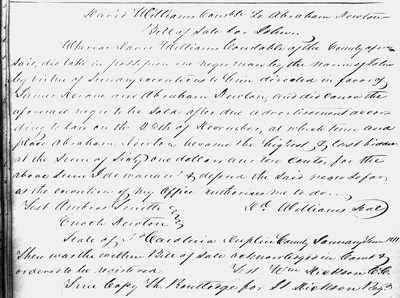 David Williams Constble to Abraham Newton
Bill of Sale for John
Whereas David Williams Constable of the County afore
Said, did take in possession one negro man by the name of John
by virtue of Sundry executions to him directed in favor of
James and Abraham Newton, and did cause the
aforesaid negro to be Sold after due advertisement accor
ding to law on the 28th of November, at which time and
place Abraham Newton became the highest & last bidder
at the Sum of Sixty one dollars and ten cents, for the
above Sum I do warrant & defend the Said negro So far
as the execution of my Office authorises me to do.
Test Ambros Smith Williams Seal
Enoch Newton
State of No Carolina Duplin County January Term
Then was the within Bill of Sale acknowledged in Court &
ordered to be registered. Test Wm Dickson C.C.
True Copy Th Routledge for Dickson Regr